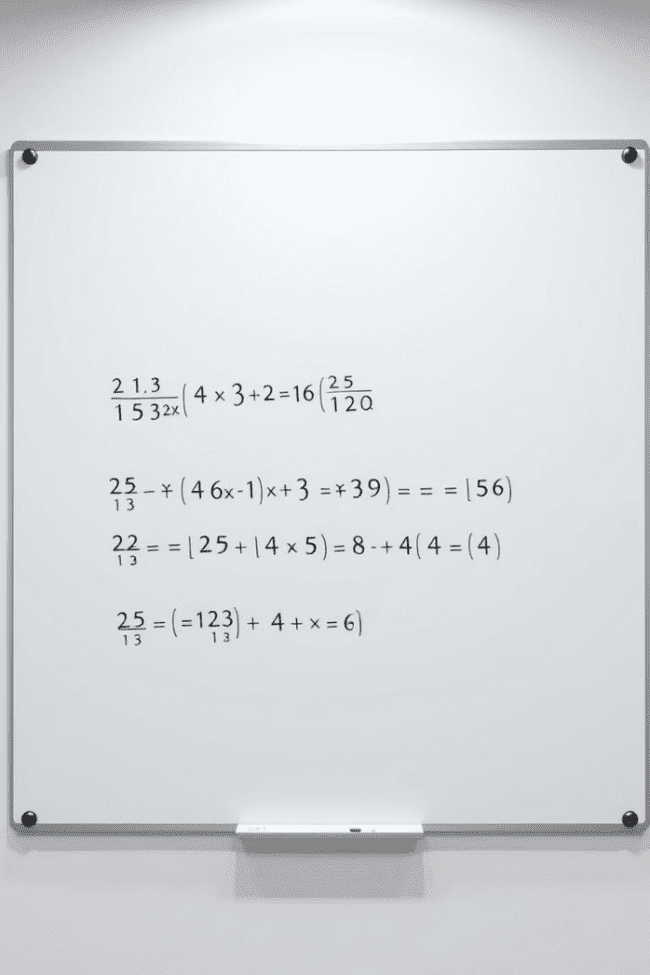 21.3/1532x(4 × 3+2=16(25/120
25/13 – ¥ (46x-1)x+3 =¥39) = = = ⌊56)
22/13 = = ⌊25 + ⌊4 × 5) = 8 -+ 4(4 = (4)
25/13 = (=123/13) + 4 + x = 6)